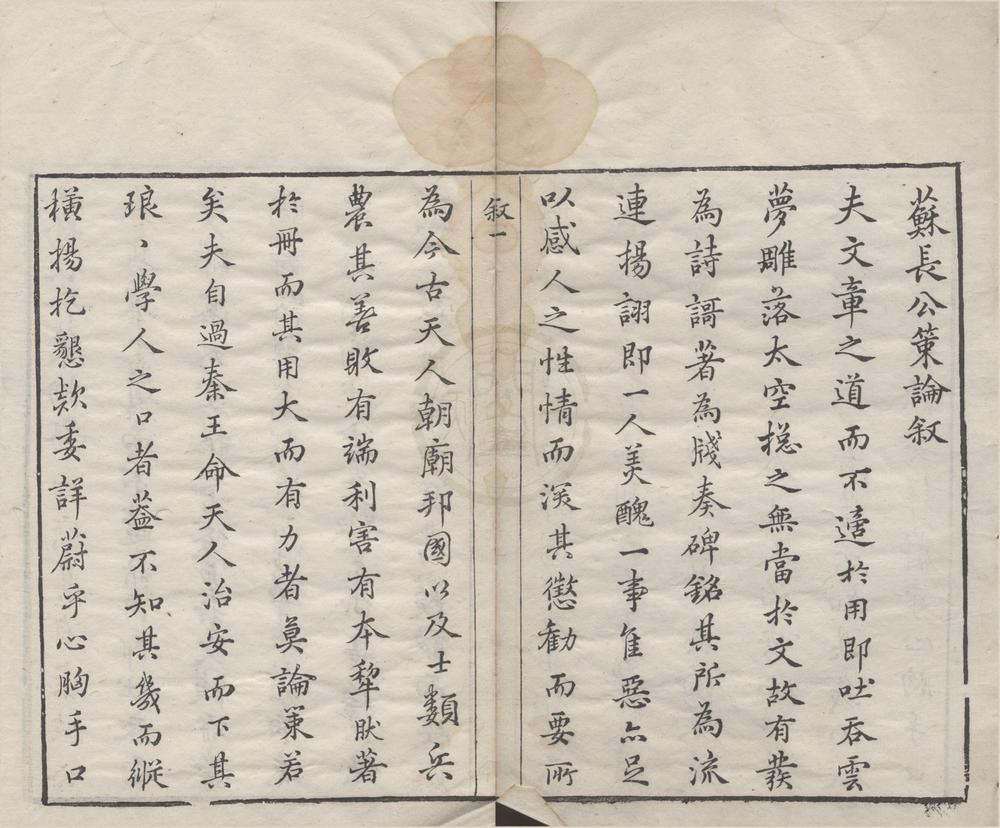 蘇長公策論叙
夫文章之道而不適於用即吐吞雲
夢雕落太空揔之無當於文故有發
為詩謌著為牋奏碑銘其所為流
連揚詡即一人美醜一事隹惡亦足
以感人之性情而深其懲勸而要所
叙一
為今古天人朝廟邦國以及士類兵
農其善敗有端利害有本犂肰著
於冊而其用大而有力者莫論策若
矣夫自過秦王命天人治安而下其
琅丶學人之口者葢不知其幾而縱
橫揚扢懇欵委詳蔚乎心胸手口